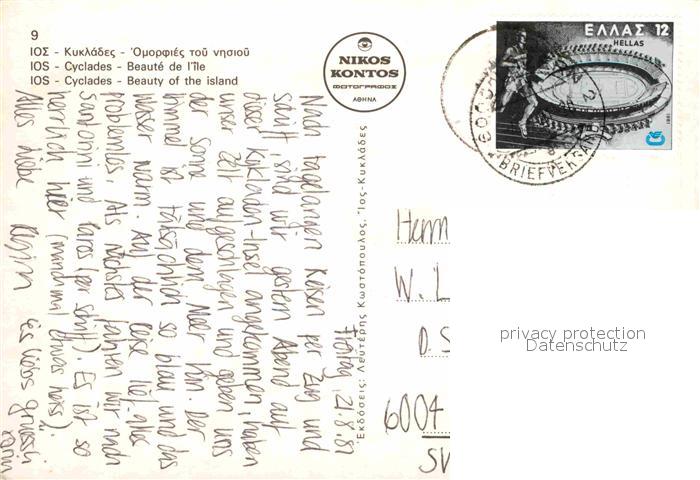 9
ΙΟΣ - Κυκλάδες - Ὀμορφιές τοῦ νησιοῦ
IOS - Cyclades - Beauté de l'île
IOS - Cyclades - Beauty of the island
NIKOS
KONTOS
ΦΩΤΟΓΡΑΦΟΣ
ΑΘΗΝΑ
ΕΛΛΑΣ 12
HELLAS
1981
BRIEFVERSAND
Ἐκδόσεις: Λευτέρης Κωστόπουλος, Ἴος-Κυκλάδες
Freitag, 21.8.81
Nach tagelangen Reisen per Zug und
Schiff, sind wir gestern Abend auf
dieser Kykladen-Insel angekommen, haben
unser Zelt aufgeschlagen und geben uns
der Sonne und dem Meer hin. Der
Himmel ist tatsächlich so blau und das
Wasser warm. Auf der Reise lief alles
problemlos. Als nächstes fahren wir nach
Santorini und Paros (per Schiff). Es ist so
herrlich hier (manchmal etwas heiss).
Alles Liebe
Es liebs Grüessli
Herrn
W. L
D S
6004
SV
privacy protection
Datenschutz